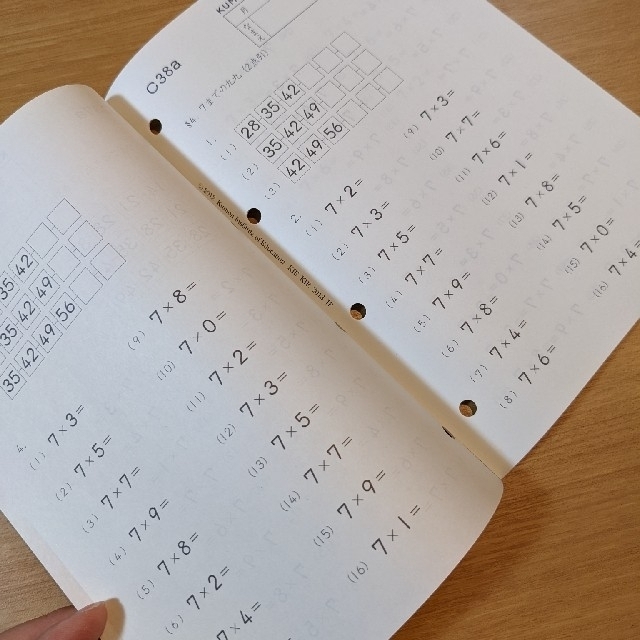 C38a
1.
(1) 28 35 42
(2) 35 42 49
(3) 42 49 56
2.
(1) 7×2=
(2) 7×3=
(3) 7×5=
(4) 7×7=
(5) 7×9=
(6) 7×8=
(7) 7×4=
(8) 7×6=
(9) 7×3=
(10) 7×7=
(11) 7×6=
(12) 7×1=
(13) 7×8=
(14) 7×5=
(15) 7×0=
(16) 7×4=
Kumon Institute of Education
35 42
35 42 49
35 42 49 56
4.
(1) 7×3=
(2) 7×5=
(3) 7×7=
(4) 7×9=
(5) 7×8=
(6) 7×2=
7×4=
(9) 7×8=
(10) 7×0=
(11) 7×2=
(12) 7×3=
(13) 7×5=
(14) 7×7=
(15) 7×9=
(16) 7×1=